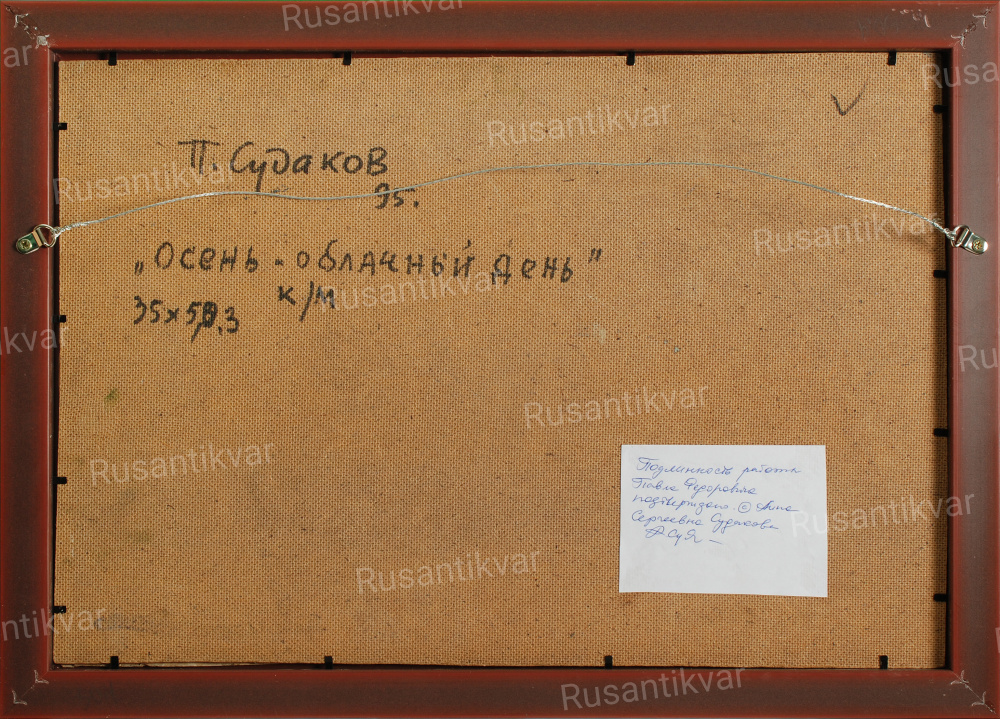 П. Судаков
95.
„Осень - облачный день"
к/м
35х50,3
Подлинность работы
Павла Федоровича
подтверждаю. © Анна
Сергеевна Судакова
Rusantikvar
Rusantikvar
Rusantikvar
Rusantikvar
Rusantikvar
Rusantikvar
Rusantikvar
Rusantikvar
Rusantikvar
Rusantikvar